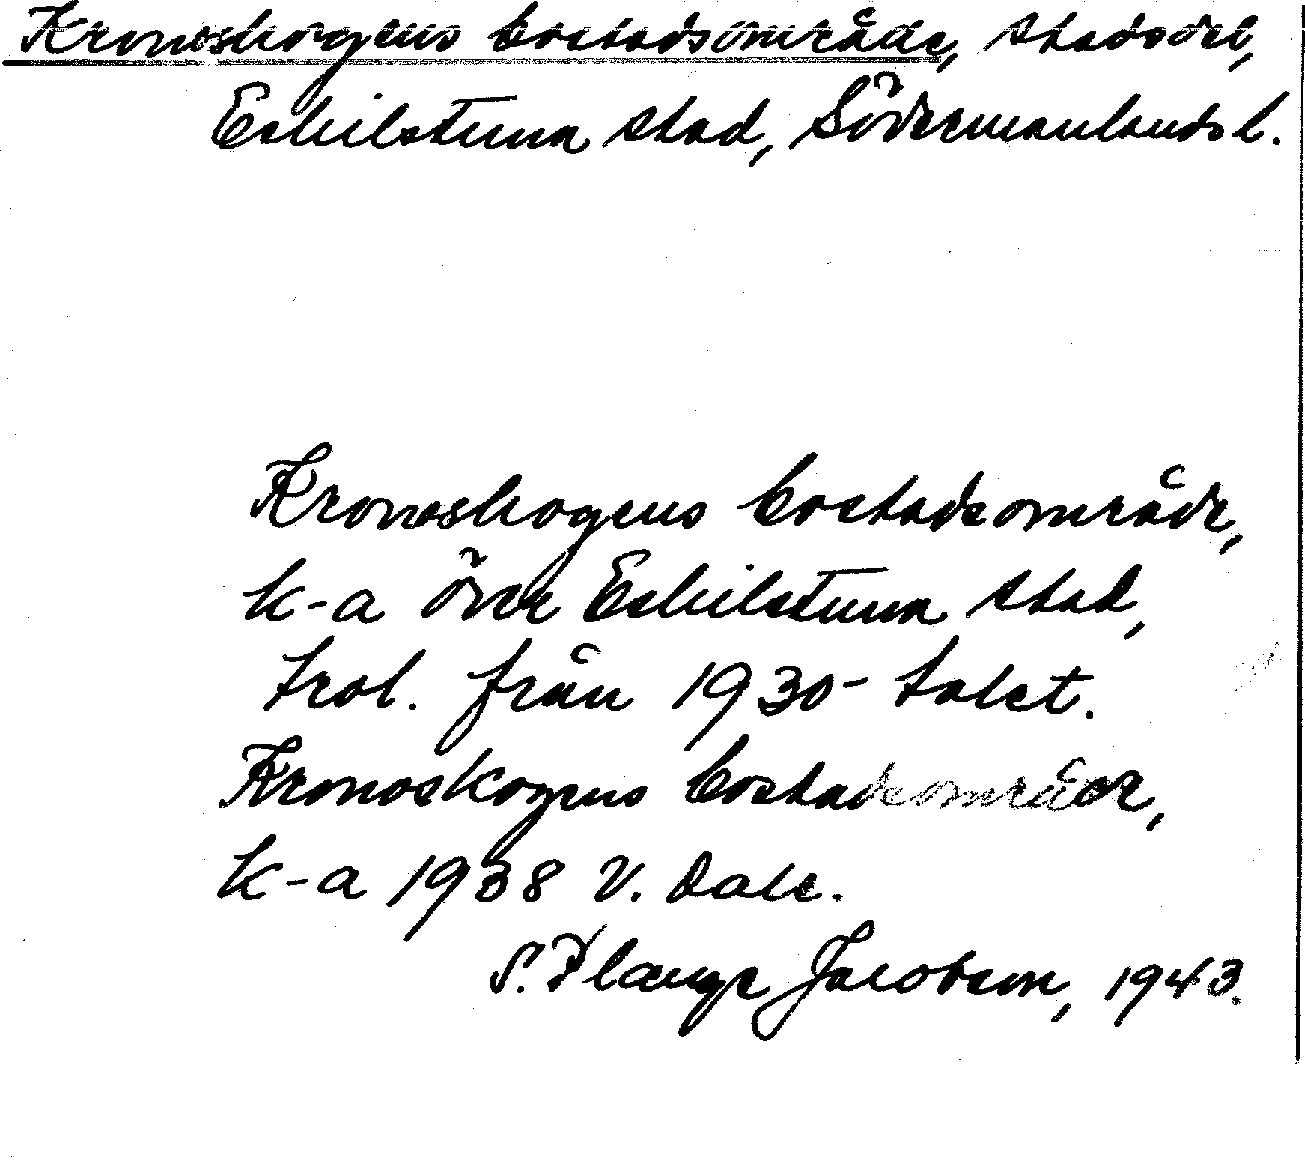 Kronoskogens bostadsområde, stadsdel,
Eskilstuna stad, Södermanlands l.
Kronoskogens bostadsområde,
k-a över Eskilstuna stad,
trol. från 1930-talet.
Kronoskogens bostadsområde,
k-a 1938 V. Dale.
S. Plænge Jacobson, 1943.